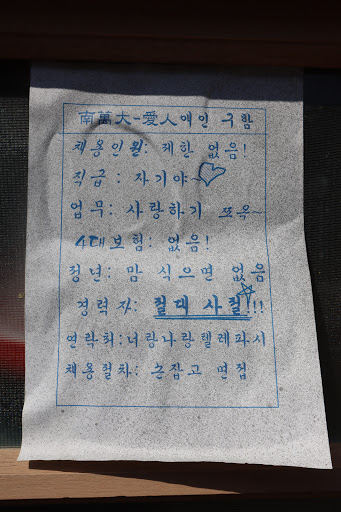 南萬大-愛人애인 구함
채용인원: 제한 없음!
직급: 자기야~
업무: 사랑하기 쪼옥~
4대보험: 없음!
정년: 맘 식으면 없음
경력자: 절대 사절!!!
연락처:너랑나랑텔레파시
채용절차: 손잡고 면접